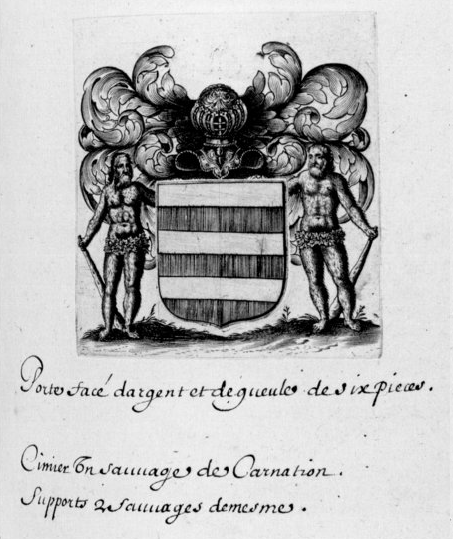 Porte facé dargent et de gueule de six pieces.
Cimier Un sauuage de Carnation.
Supports 2 sauuages demesme.